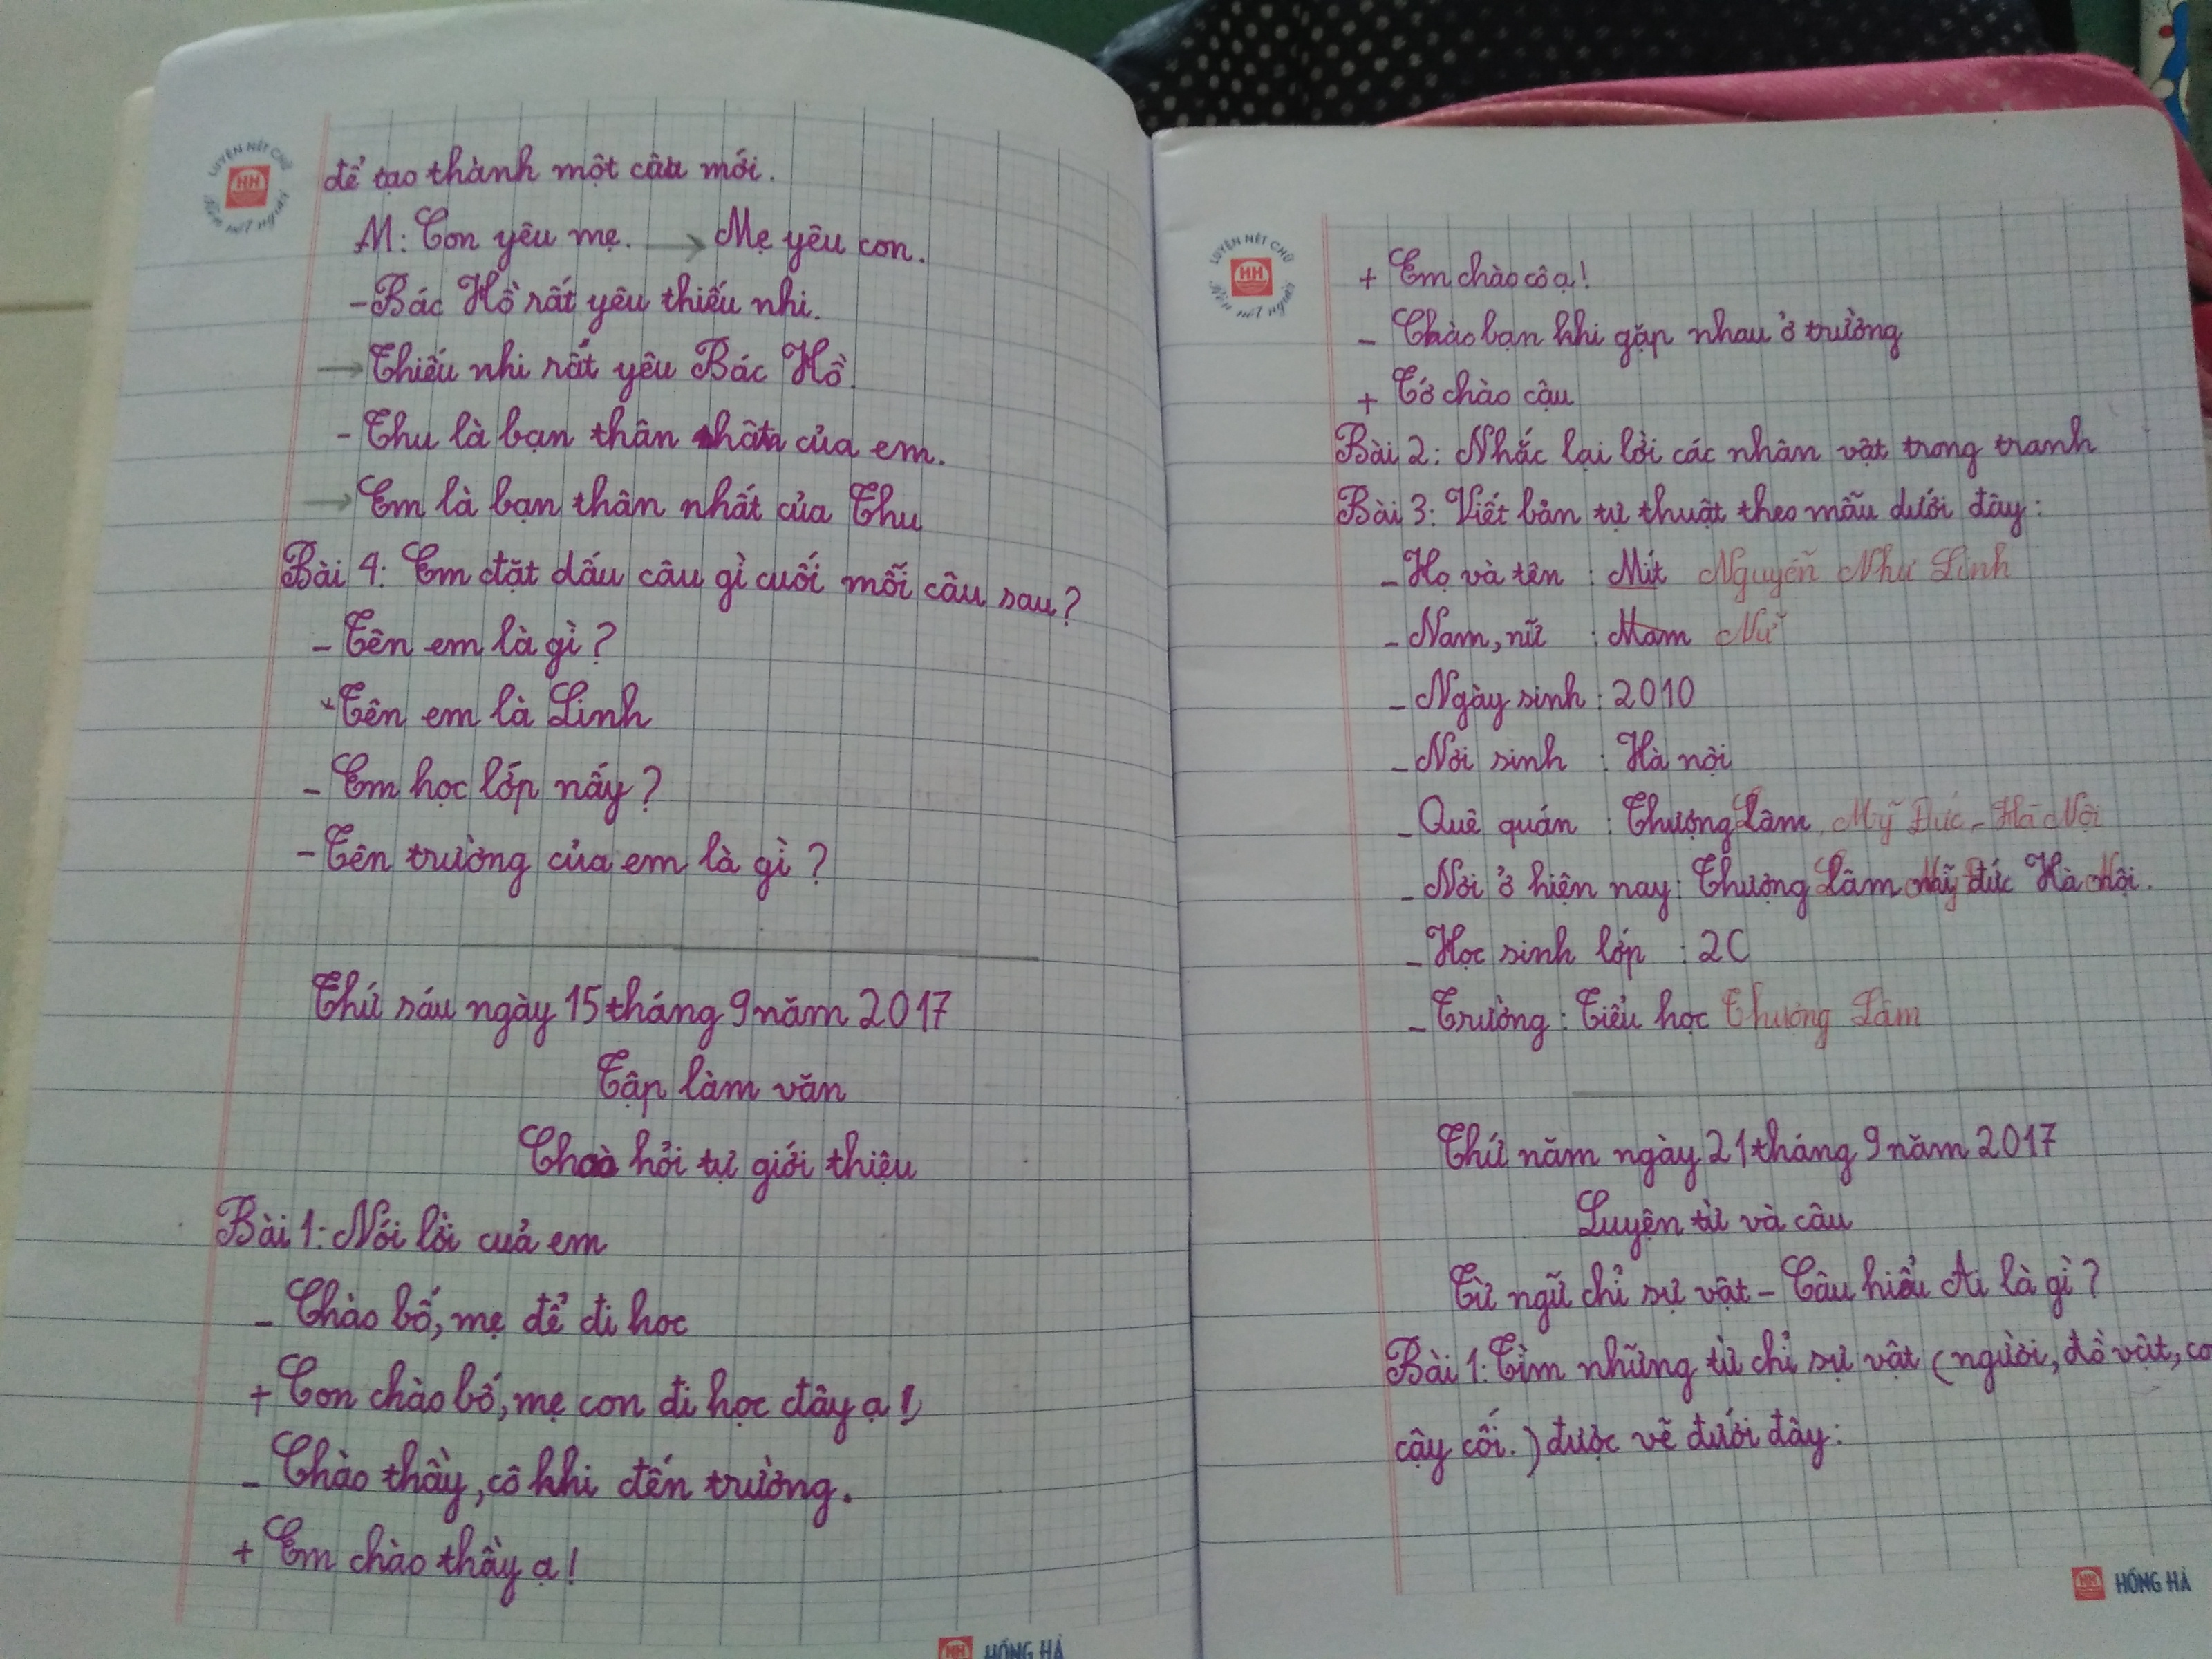 LUYỆN NÉT CHỮ
HH
Rèn nết người
để tạo thành một câu mới.
M: Con yêu mẹ. → Mẹ yêu con.
- Bác Hồ rất yêu thiếu nhi.
→ Thiếu nhi rất yêu Bác Hồ.
- Thu là bạn thân của em.
→ Em là bạn thân nhất của Thu
Bài 4: Em đặt dấu câu gì cuối mỗi câu sau?
- Tên em là gì?
Tên em là Linh
- Em học lớp nấy?
- Tên trường của em là gì?
Thứ sáu ngày 15 tháng 9 năm 2017
Tập làm văn
hỏi tự giới thiệu
Bài 1: Nói lời cuả em
- Chào bố, mẹ để đi hoc
+ Con chào bố, mẹ con đi học đây ạ!
- Chào thầy, cô khi đến trường.
+ Em chào thầy ạ!
HH HỒNG HÀ
LUYỆN NÉT CHỮ
HH
Rèn nết người
+ Em chào cô ạ!
- Chào bạn khi gặp nhau ở trường
+ Tớ chào cậu
Bài 2: Nhắc lại lời các nhân vật trong tranh
Bài 3: Viết bản tự thuật theo mẫu dưới đây:
- Họ và tên : Mít Nguyễn Như Linh
- Nam, nữ : Nam Nữ
- Ngày sinh : 2010
- Nơi sinh : Hà nội
- Quê quán : Thượng Lâm, Mỹ Đức - Hà Nội
- Nơi ở hiện nay: Thượng Lâm Mỹ đức Hà Nội.
- Học sinh lớp : 2C
- Trường : Tiểu học Thượng Lâm
Thứ năm ngày 21 tháng 9 năm 2017
Luyện từ và câu
Từ ngữ chỉ sự vật - Câu hiểu Ai là gì?
Bài 1: Tìm những từ chỉ sự vật (người, đồ vật, co
cậy cối.) được vẽ dưới đây:
HH HỒNG HÀ